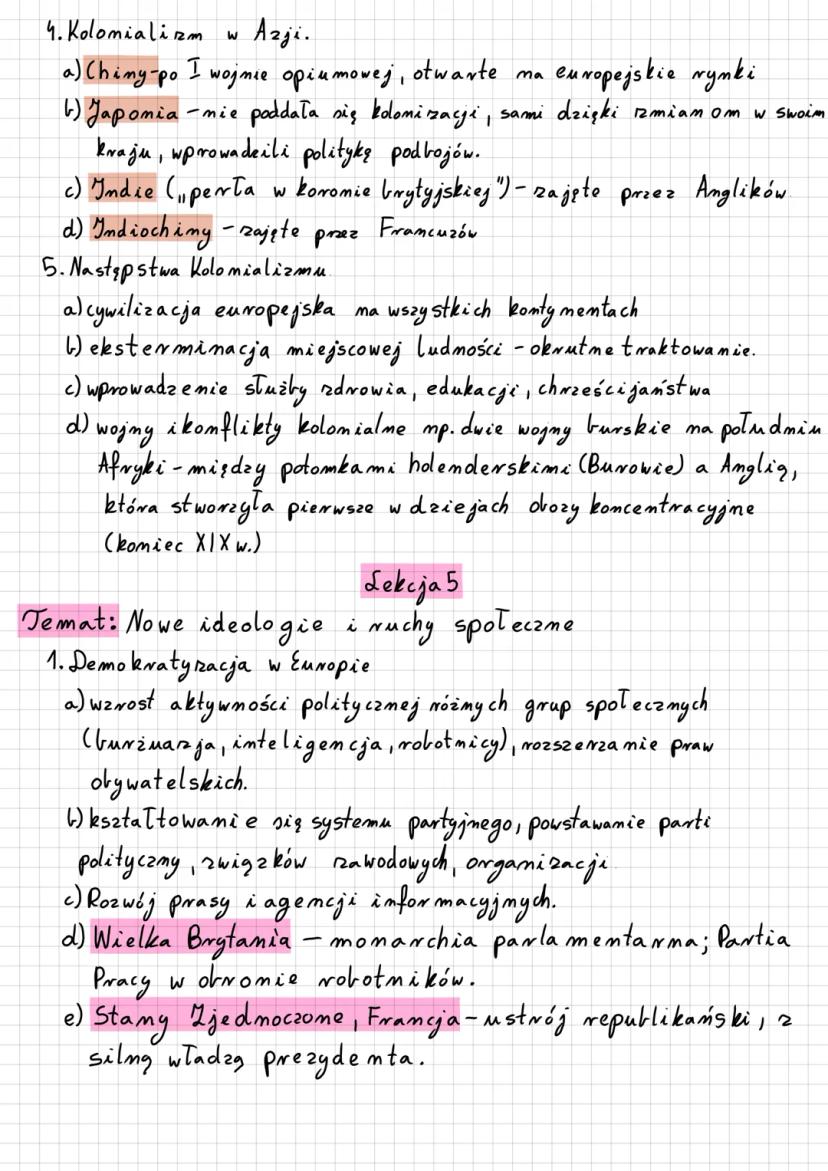 4. Kolonializm w Azji.
a) Chiny - po I wojnie opiumowej, otwarte na europejskie rynki
b) Japonia - nie poddała się kolonizacji, sami dzięki zmianom w swoim
kraju, wprowadzili politykę podbojów.
c) Indie („perła w koronie brytyjskiej") - zajęte przez Anglików
d) Indiochiny - zajęte przez Francuzów
5. Następstwa Kolonializmu
a) cywilizacja europejska na wszystkich kontynentach
b) eksterminacja miejscowej ludności - okrutne traktowanie.
c) wprowadzenie służby zdrowia, edukacji, chrześcijaństwa
d) wojny i konflikty kolonialne np. dwie wojny burskie na południu
Afryki - między potomkami holenderskimi (Burowie) a Anglią,
która stworzyła pierwsze w dziejach obozy koncentracyjne
(koniec XIX w.)
Lekcja 5
Temat: Nowe ideologie i ruchy społeczne
1. Demokratyzacja w Europie
a) wzrost aktywności politycznej różnych grup społecznych
(burżuazja, inteligencja, robotnicy), rozszerzanie praw
obywatelskich.
b) kształtowanie się systemu partyjnego, powstawanie parti
polityczny, związków zawodowych, organizacji
c) Rozwój prasy i agencji informacyjnych.
d) Wielka Brytania - monarchia parlamentarna; Partia
Pracy w obronie robotników.
e) Stany Zjednoczone, Francja - ustrój republikański, z
silną władzą prezydenta.